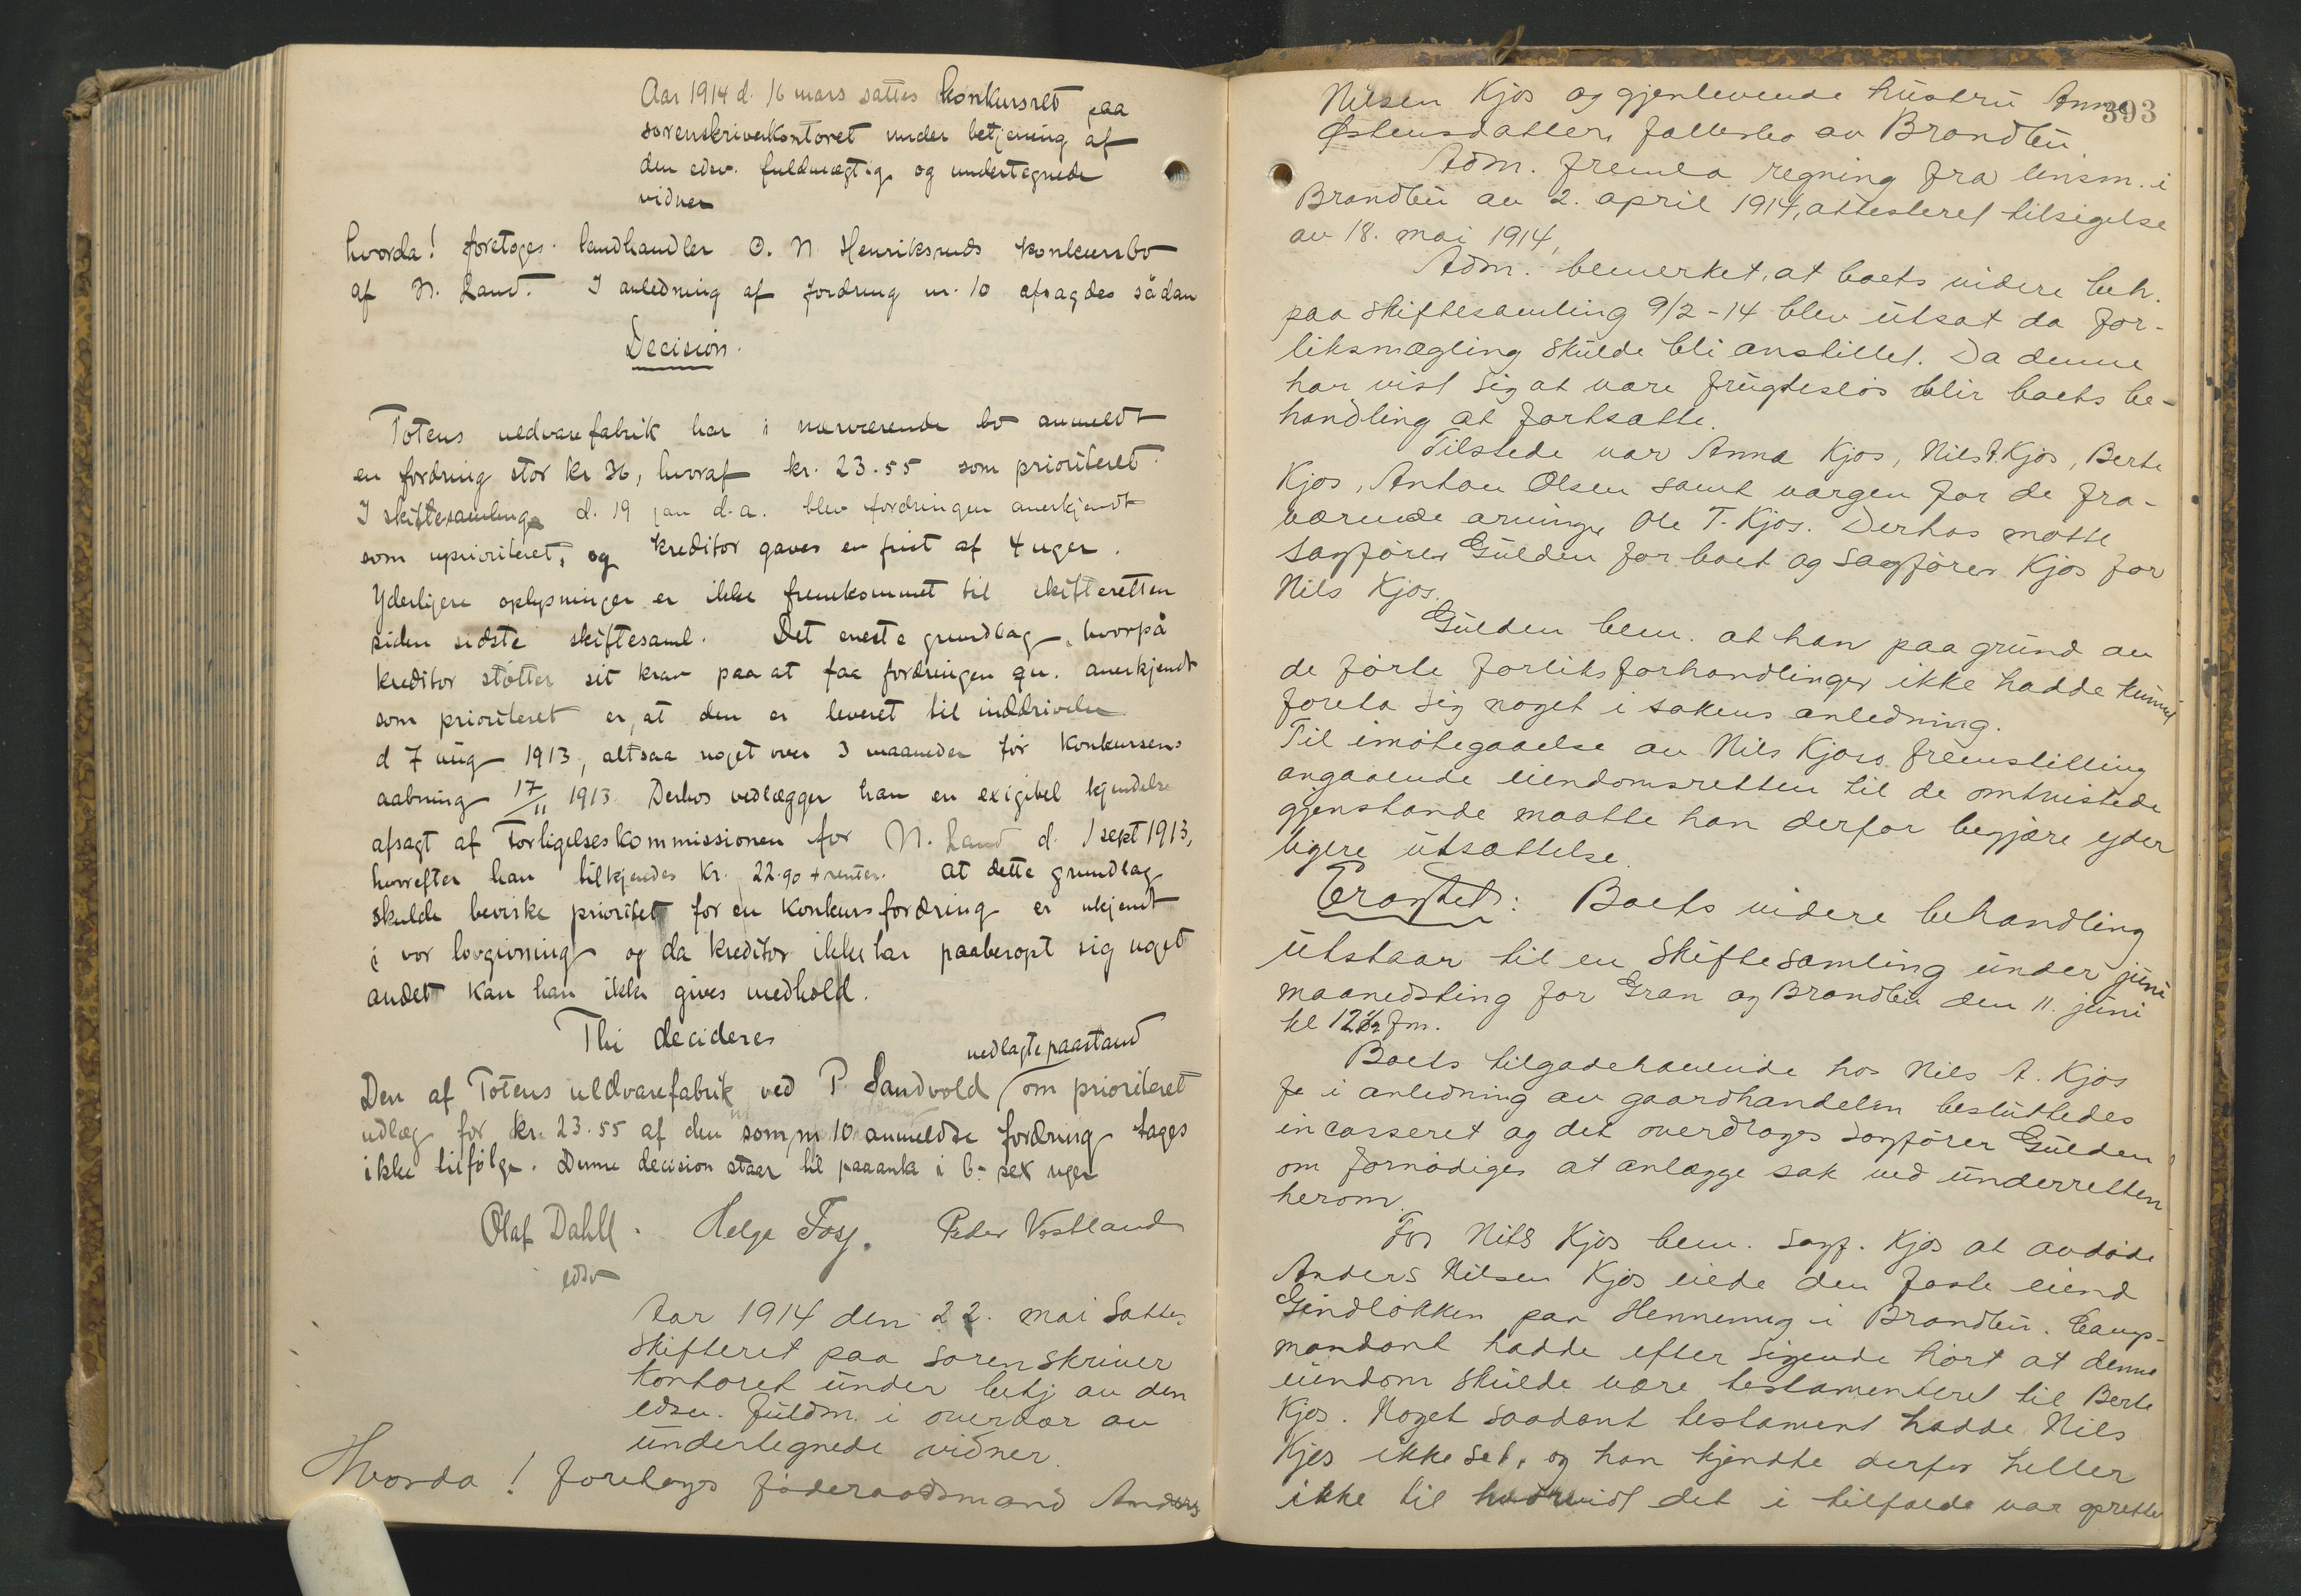 Aar 1914 d. 16 mars sattes konkursret paa
sorenskriverkontoret under betjening af
den edsv. fuldmægtig og undertegnede
vidner
hvorda! foretoges landhandler O. N Henriksruds konkursbo
af N. Land. I anledning af fordring nr. 10 afsagdes sådan
Decision.
Totens uldvarefabrik har i nærværende bo anmeldt
en fordring stor kr 36, hvoraf kr. 23.55 som prioriteret.
I skiftesamling d. 19 jan d.a. blev fordringen anerkjendt
som uprioriteret, og kreditor gaves en frist af 4 uger.
Yderligere oplysninger er ikke fremkommet til skifteretten
siden sidste skiftesaml. Det eneste grundlag, hvorpå
kreditor støtter sit krav paa at faa fordringen qu. anerkjendt
som prioriteret er, at den er leveret til inddrivelse
d 7 aug 1913, altsaa noget over 3 maaneder før konkursens
aabning 17/11 1913. Derhos vedlægger han en exigibel kjendelse
afsagt af Forligelseskommissionen for N. Land d. 1 sept 1913,
hvorefter han tilkjendes kr. 22.90 + renter. At dette grundlag
skulde bevirke prioritet for en konkursfordring er ukjendt
i vor lovgivning og da kreditor ikke har paaberopt sig noget
andet kan han ikke gives medhold.
Thi decideres
nedlagte paastand
Den af Totens uldvarefabrik ved P. Sandvold om prioriteret
udlæg for kr. 23.55 af den som nr 10 anmeldte fordring tages
ikke tilfølge. Denne decision staar til paaanke i 6 - sex uger
Olaf Dahll. Helge Fosz. Peder Vestland
edsv
Aar 1914 den 22. mai sattes
skifteret paa sorenskriver
kontoret under betj av den
edsv. fuldm. i overvær av
undertegnede vidner.
Hvorda! foretoges føderaadsmand Anders
393
Nilsen Kjos og gjenlevende hustru Anne
Østensdatters fællesbo av Brandbu
Adm. fremla regning fra lensm. i
Brandbu av 2. april 1914, attesteret tilsigelse
av 18. mai 1914,
Adm. bemerket, at boets videre beh.
paa skiftesamling 9/2-14 blev utsat da for-
liksmægling skulde bli anstillet. Da denne
har vist sig at være frugtesløs blir boets be-
handling at fortsætte.
Tilstede var Anna Kjos, Nils A. Kjos, Berte
Kjos, Anton Olsen samt værgen for de fra-
værende arvinger Ole T. Kjos. Derhos møtte
sagfører Gulden for boet og sagfører Kjos for
Nils Kjos.
Gulden bem. at han paa grund av
de førte forliksforhandlinger ikke hadde kunnet
foreta sig noget i sakens anledning.
Til imøtegaaelse av Nils Kjos's fremstilling
angaaende eiendomsretten til de omtvistede
gjenstande maatte han derfor begjære yder
ligere utsættelse.
Eragtet: Boets videre behandling
utstaar til en skiftesamling under juni
maanedsting for Gran og Brandbu den 11. juni
kl 12 1/2 fm.
Boets tilgodehavende hos Nils A. Kjos
fe i anledning av gaardhandelen besluttedes
incasseret og det overdroges sagfører Gulden
om fornødiges at anlægge sak ved underretten
herom.
For Nils Kjos bem. sagf. Kjos at avdøde
Anders Nilsen Kjos eiede den faste eiend
Grindløkken paa Hennung i Brandbu. Comp-
mandant hadde efter sigende hørt at denne
eiendom skulde være testamenteret til Berte
Kjos. Noget saadant testament hadde Nils
Kjos ikke set, og han kjendte derfor heller
ikke til hvorvidt det i tilfælde var oprettet